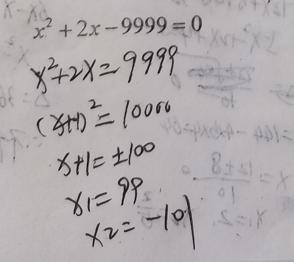 x² + 2x - 9999 = 0
x²+2x=9999
(x+1)²=10000
x+1=±100
x₁=99
x₂=-101